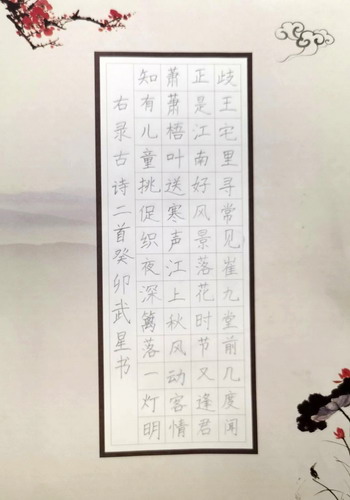 歧王宅里寻常见崔九堂前几度闻
正是江南好风景落花时节又逢君
萧萧梧叶送寒声江上秋风动客情
知有儿童挑促织夜深篱落一灯明
右录古诗二首癸卯武星书